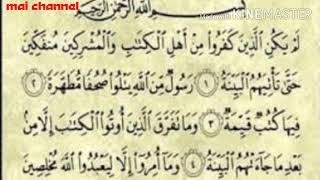 mai channel
MADE WITH
KINEMASTER
بِسْمِ اللَّهِ الرَّحْمَٰنِ الرَّحِيمِ
لَمْ يَكُنِ الَّذِينَ كَفَرُوا مِنْ أَهْلِ الْكِتَابِ وَالْمُشْرِكِينَ مُنفَكِّينَ
حَتَّىٰ تَأْتِيَهُمُ الْبَيِّنَةُ ١ رَسُولٌ مِّنَ اللَّهِ يَتْلُوا صُحُفًا مُّطَهَّرَةً ٢
فِيهَا كُتُبٌ قَيِّمَةٌ ٣ وَمَا تَفَرَّقَ الَّذِينَ أُوتُوا الْكِتَابَ إِلَّا مِن
بَعْدِ مَا جَاءَتْهُمُ الْبَيِّنَةُ ٤ وَمَا أُمِرُوا إِلَّا لِيَعْبُدُوا اللَّهَ مُخْلِصِينَ